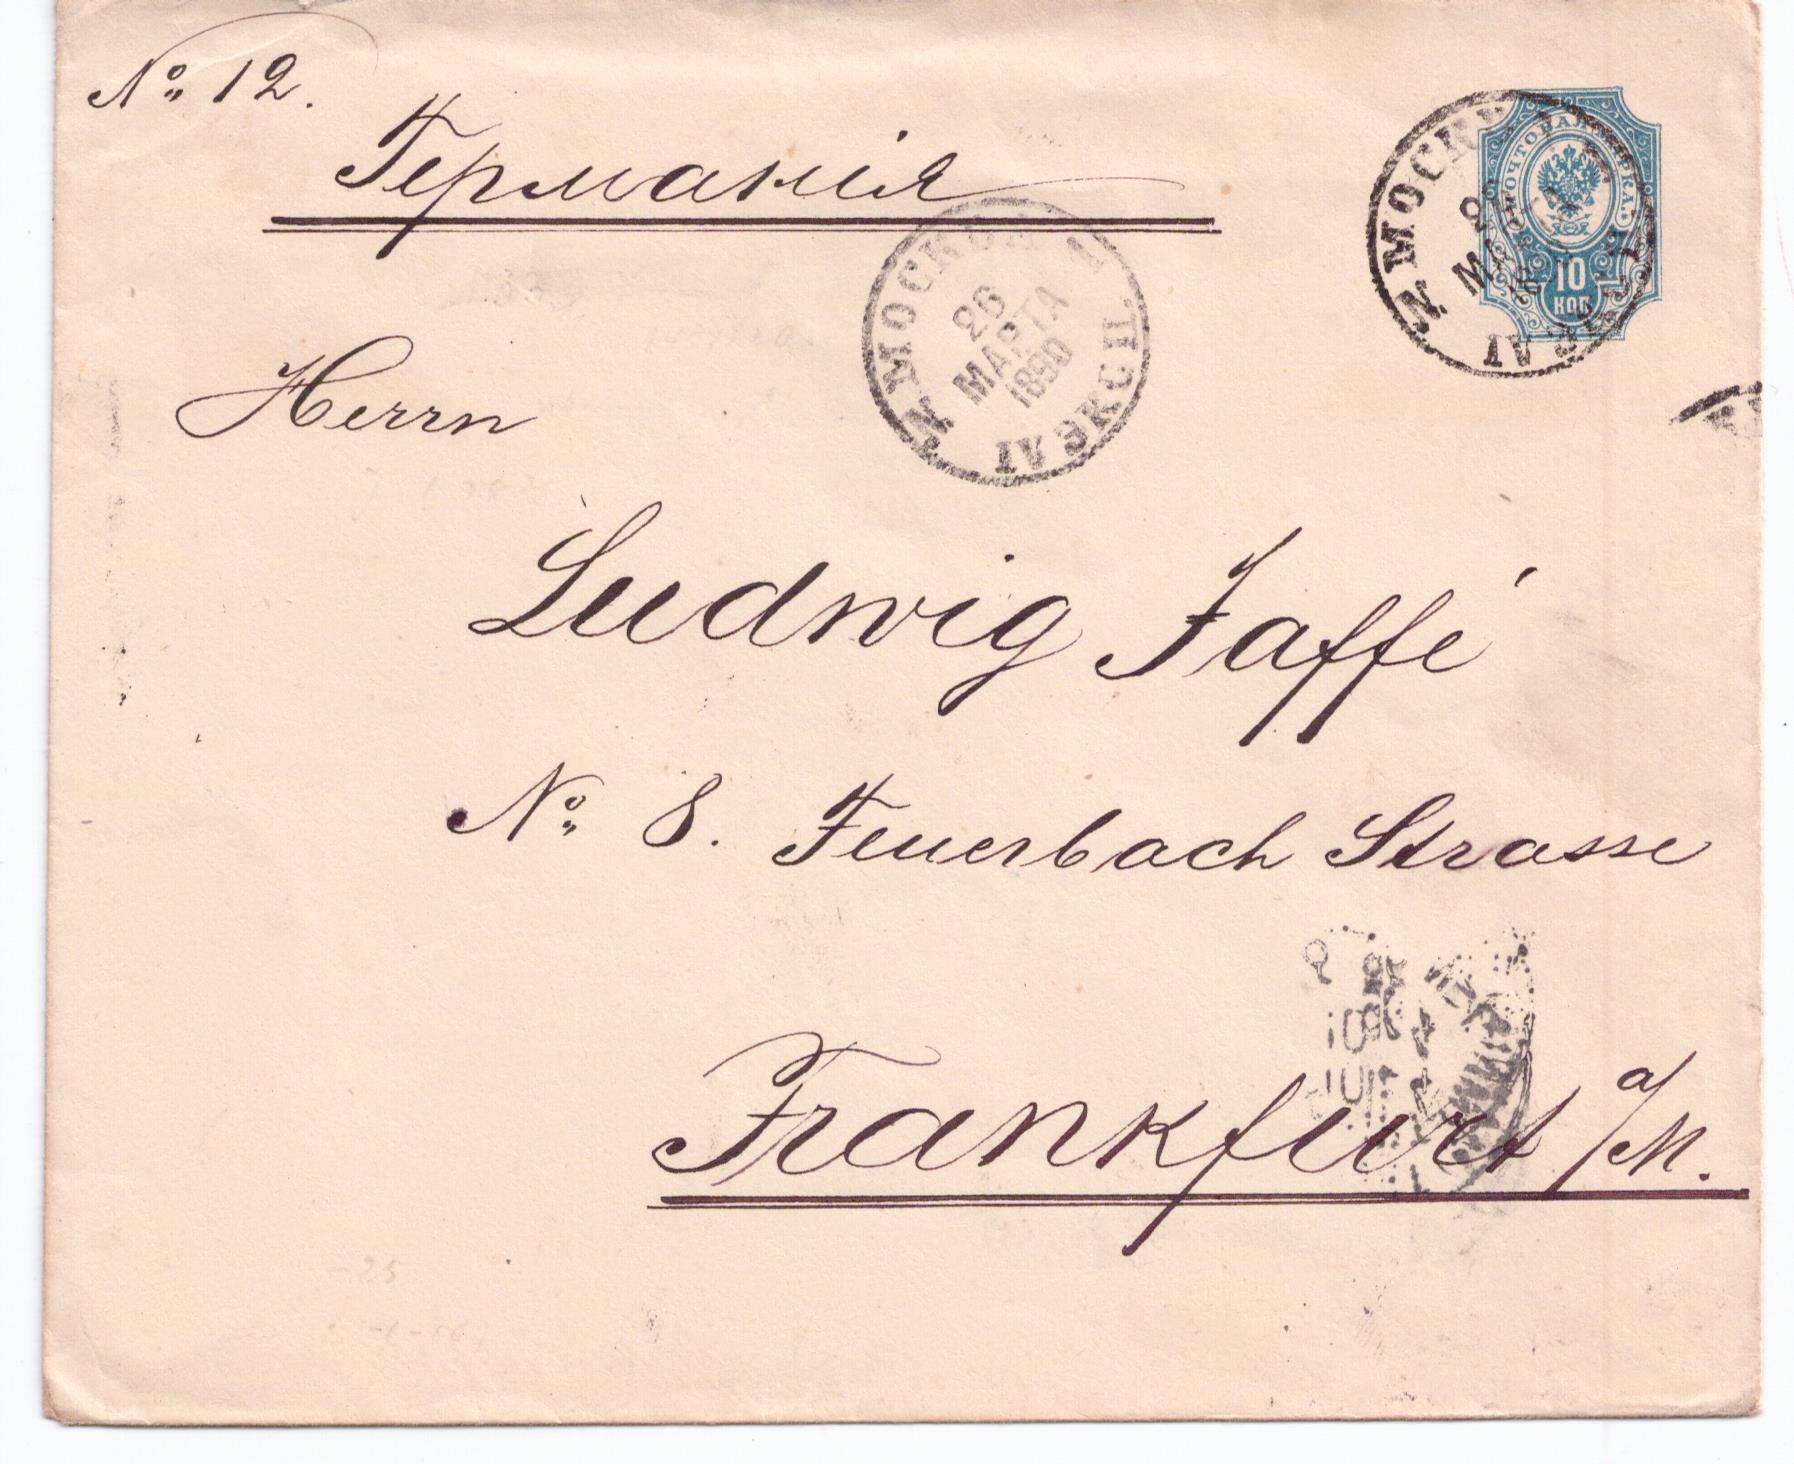 No 12.
Германія
ПОЧТОВАЯ
10
КОП
МОСКВА
26
МАРТА
1890
IV ЭКСП.
Herrn
Ludwig Jaffé
No 8. Feuerbach Strasse
Frankfurt a/M.